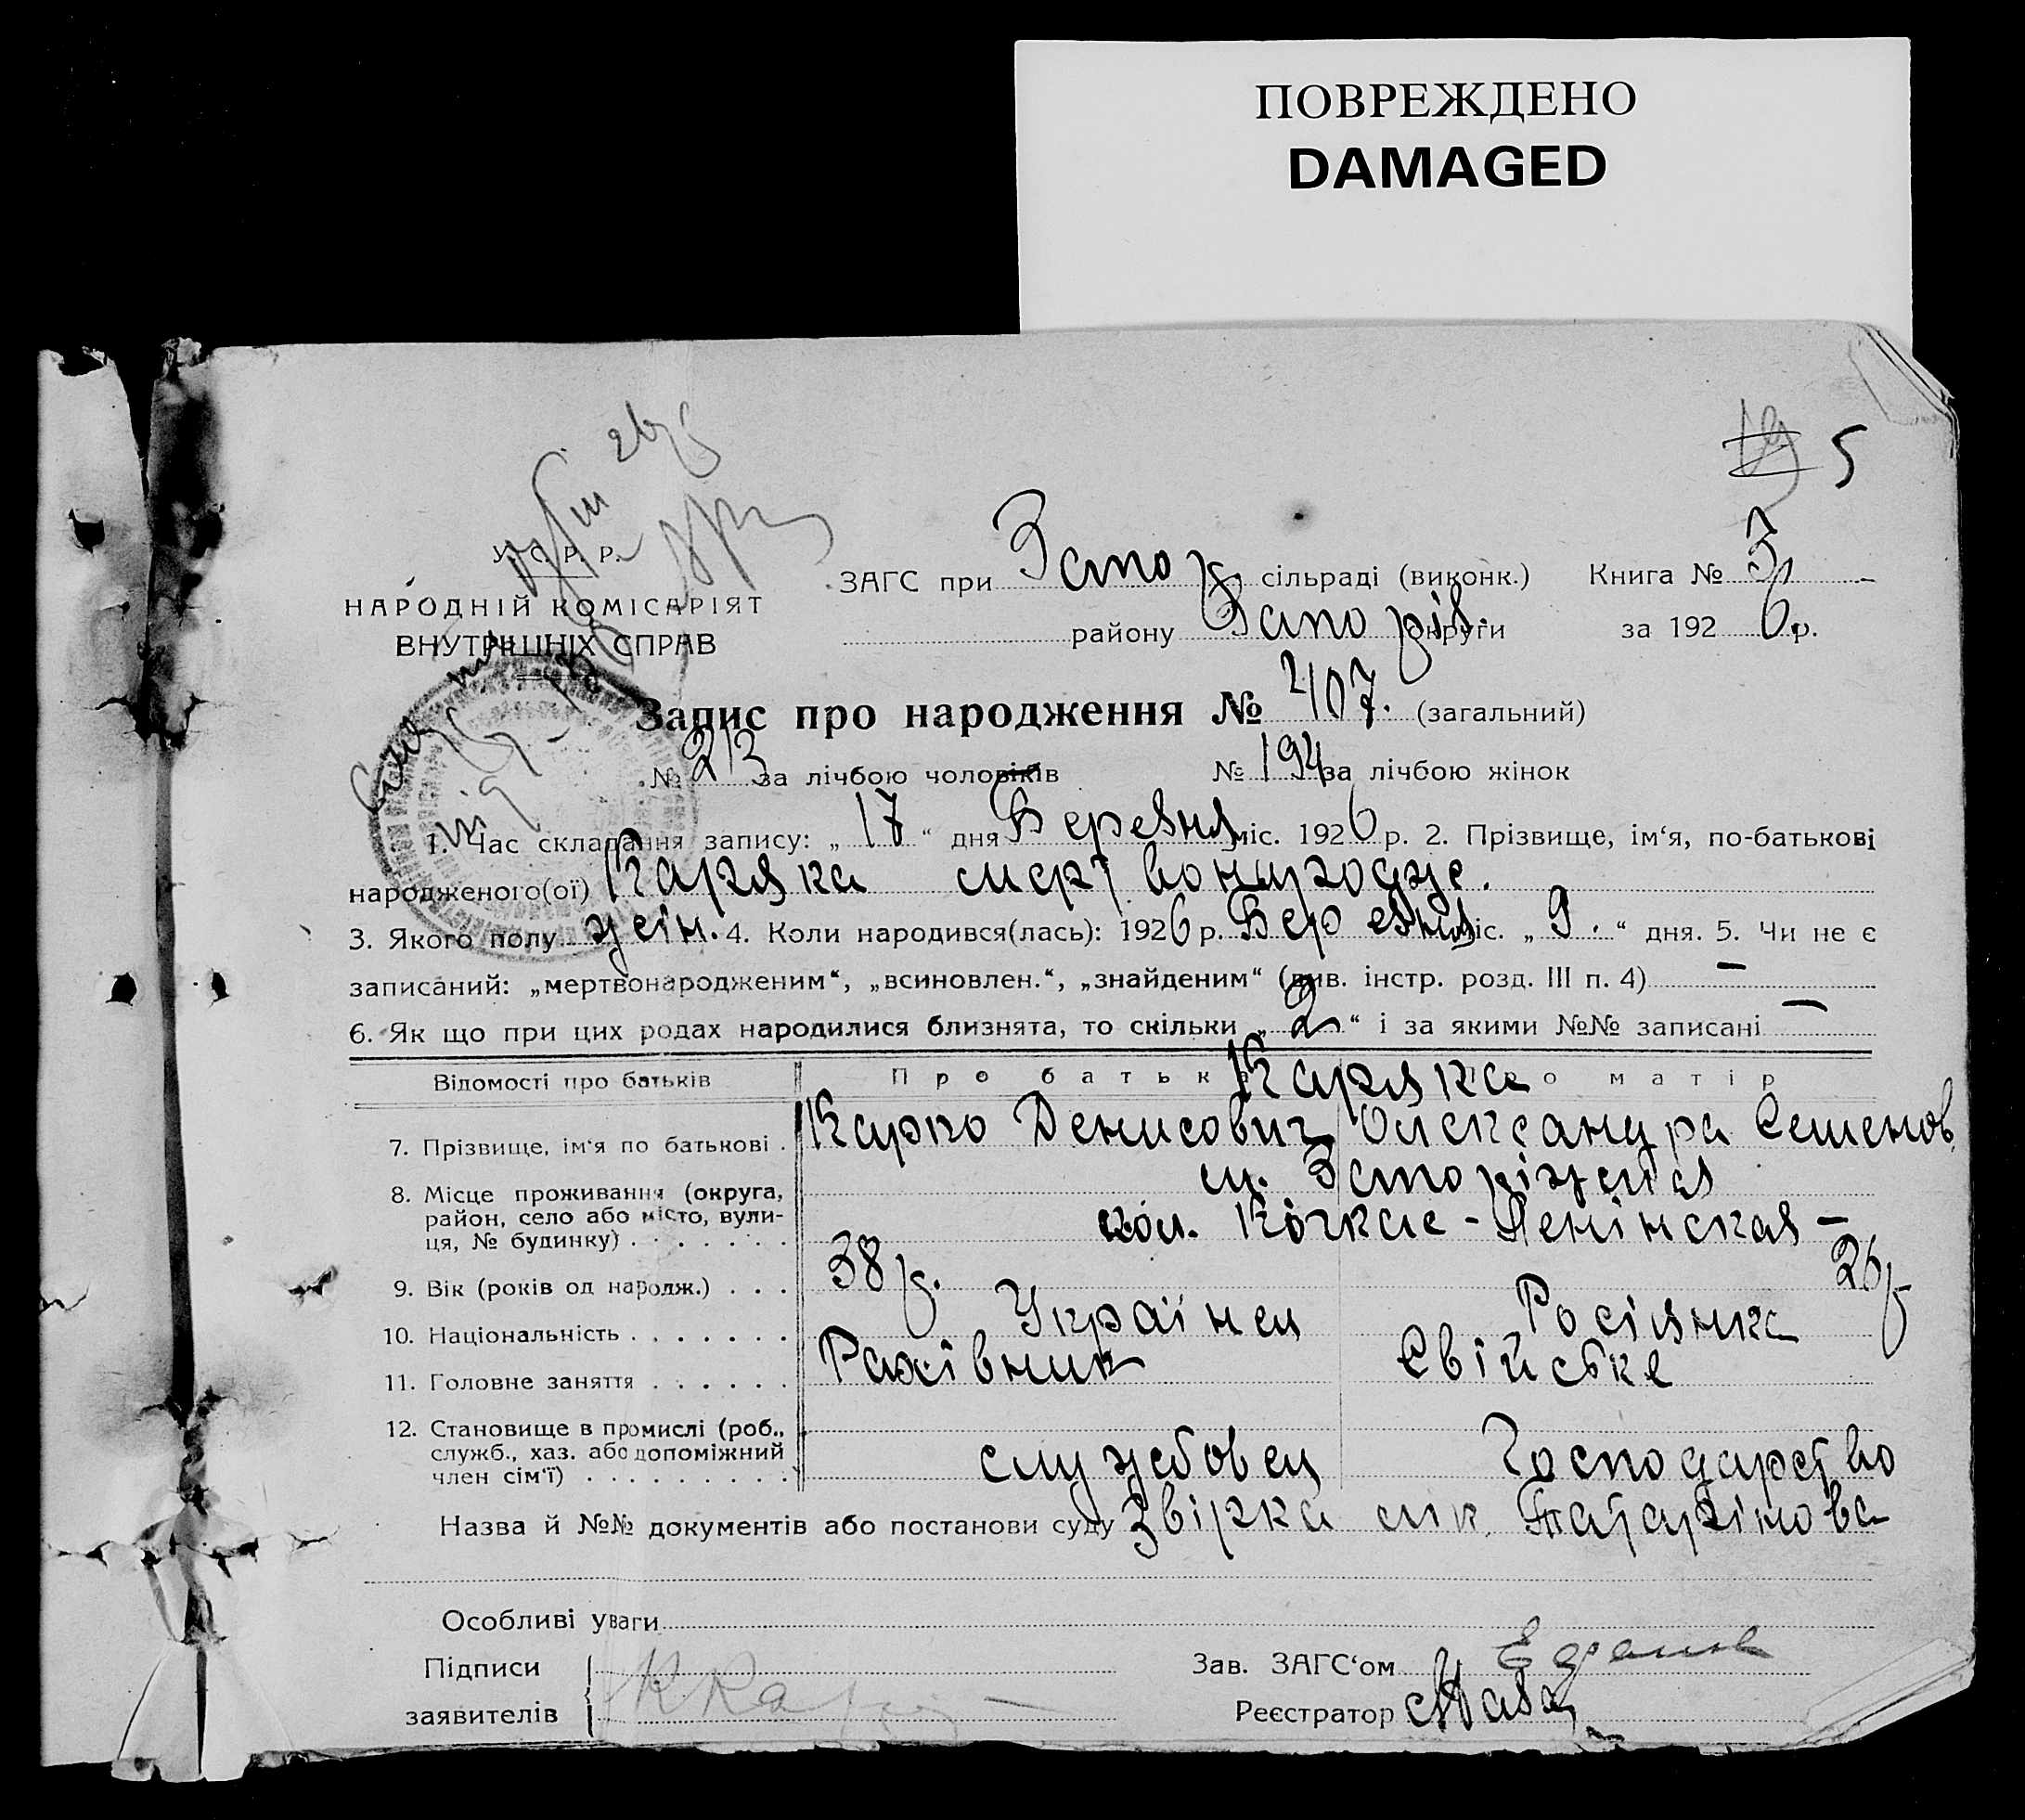 ПОВРЕЖДЕНО
DAMAGED
5
У. С. Р. Р.
НАРОДНІЙ КОМІСАРІЯТ
ВНУТРІШНІХ СПРАВ
ЗАГС при Запор. сільраді (виконк.) Книга № 3
району Запоріз. округи за 1926 р.
Запис про народження № 407. (загальний)
№ 213 за лічбою чоловіків № 194 за лічбою жінок
1. Час складання запису: „17“ дня Березня міс. 1926 р. 2. Прізвище, ім‘я, по-батькові
народженого(ої) Каряка мертвонародже.
3. Якого полу жін. 4. Коли народився(лась): 1926 р. Березня міс. „9.“ дня. 5. Чи не є
записаний: „мертвонародженим“, „всиновлен.“, „знайденим“ (див. інстр. розд. III п. 4) —
6. Як що при цих родах народилися близнята, то скільки „2“ і за якими №№ записані —
Відомості про батьків Про батька Про матір
Каряка
7. Прізвище, ім‘я по батькові . Карпо Денисович Олександра Семенов.
8. Місце проживання (округа, район, село або місто, вулиця, № будинку) . . . . . . . м. Запоріжжя
кол. Кічкас - Ленінская —
9. Вік (років од народж.) . . . 38 р. 26 р.
10. Національність . . . . . . . Українец Росіянка
11. Головне заняття . . . . . . Рахівник Свійське
12. Становище в промислі (роб., служб., хаз. або допоміжний член сім‘ї) . . . . . . . . . службовец Господарство
Назва й №№ документів або постанови суду Звірка лік. Татарінова
Особливі уваги
Підписи
заявителів
Зав. ЗАГС‘ом
Реєстратор